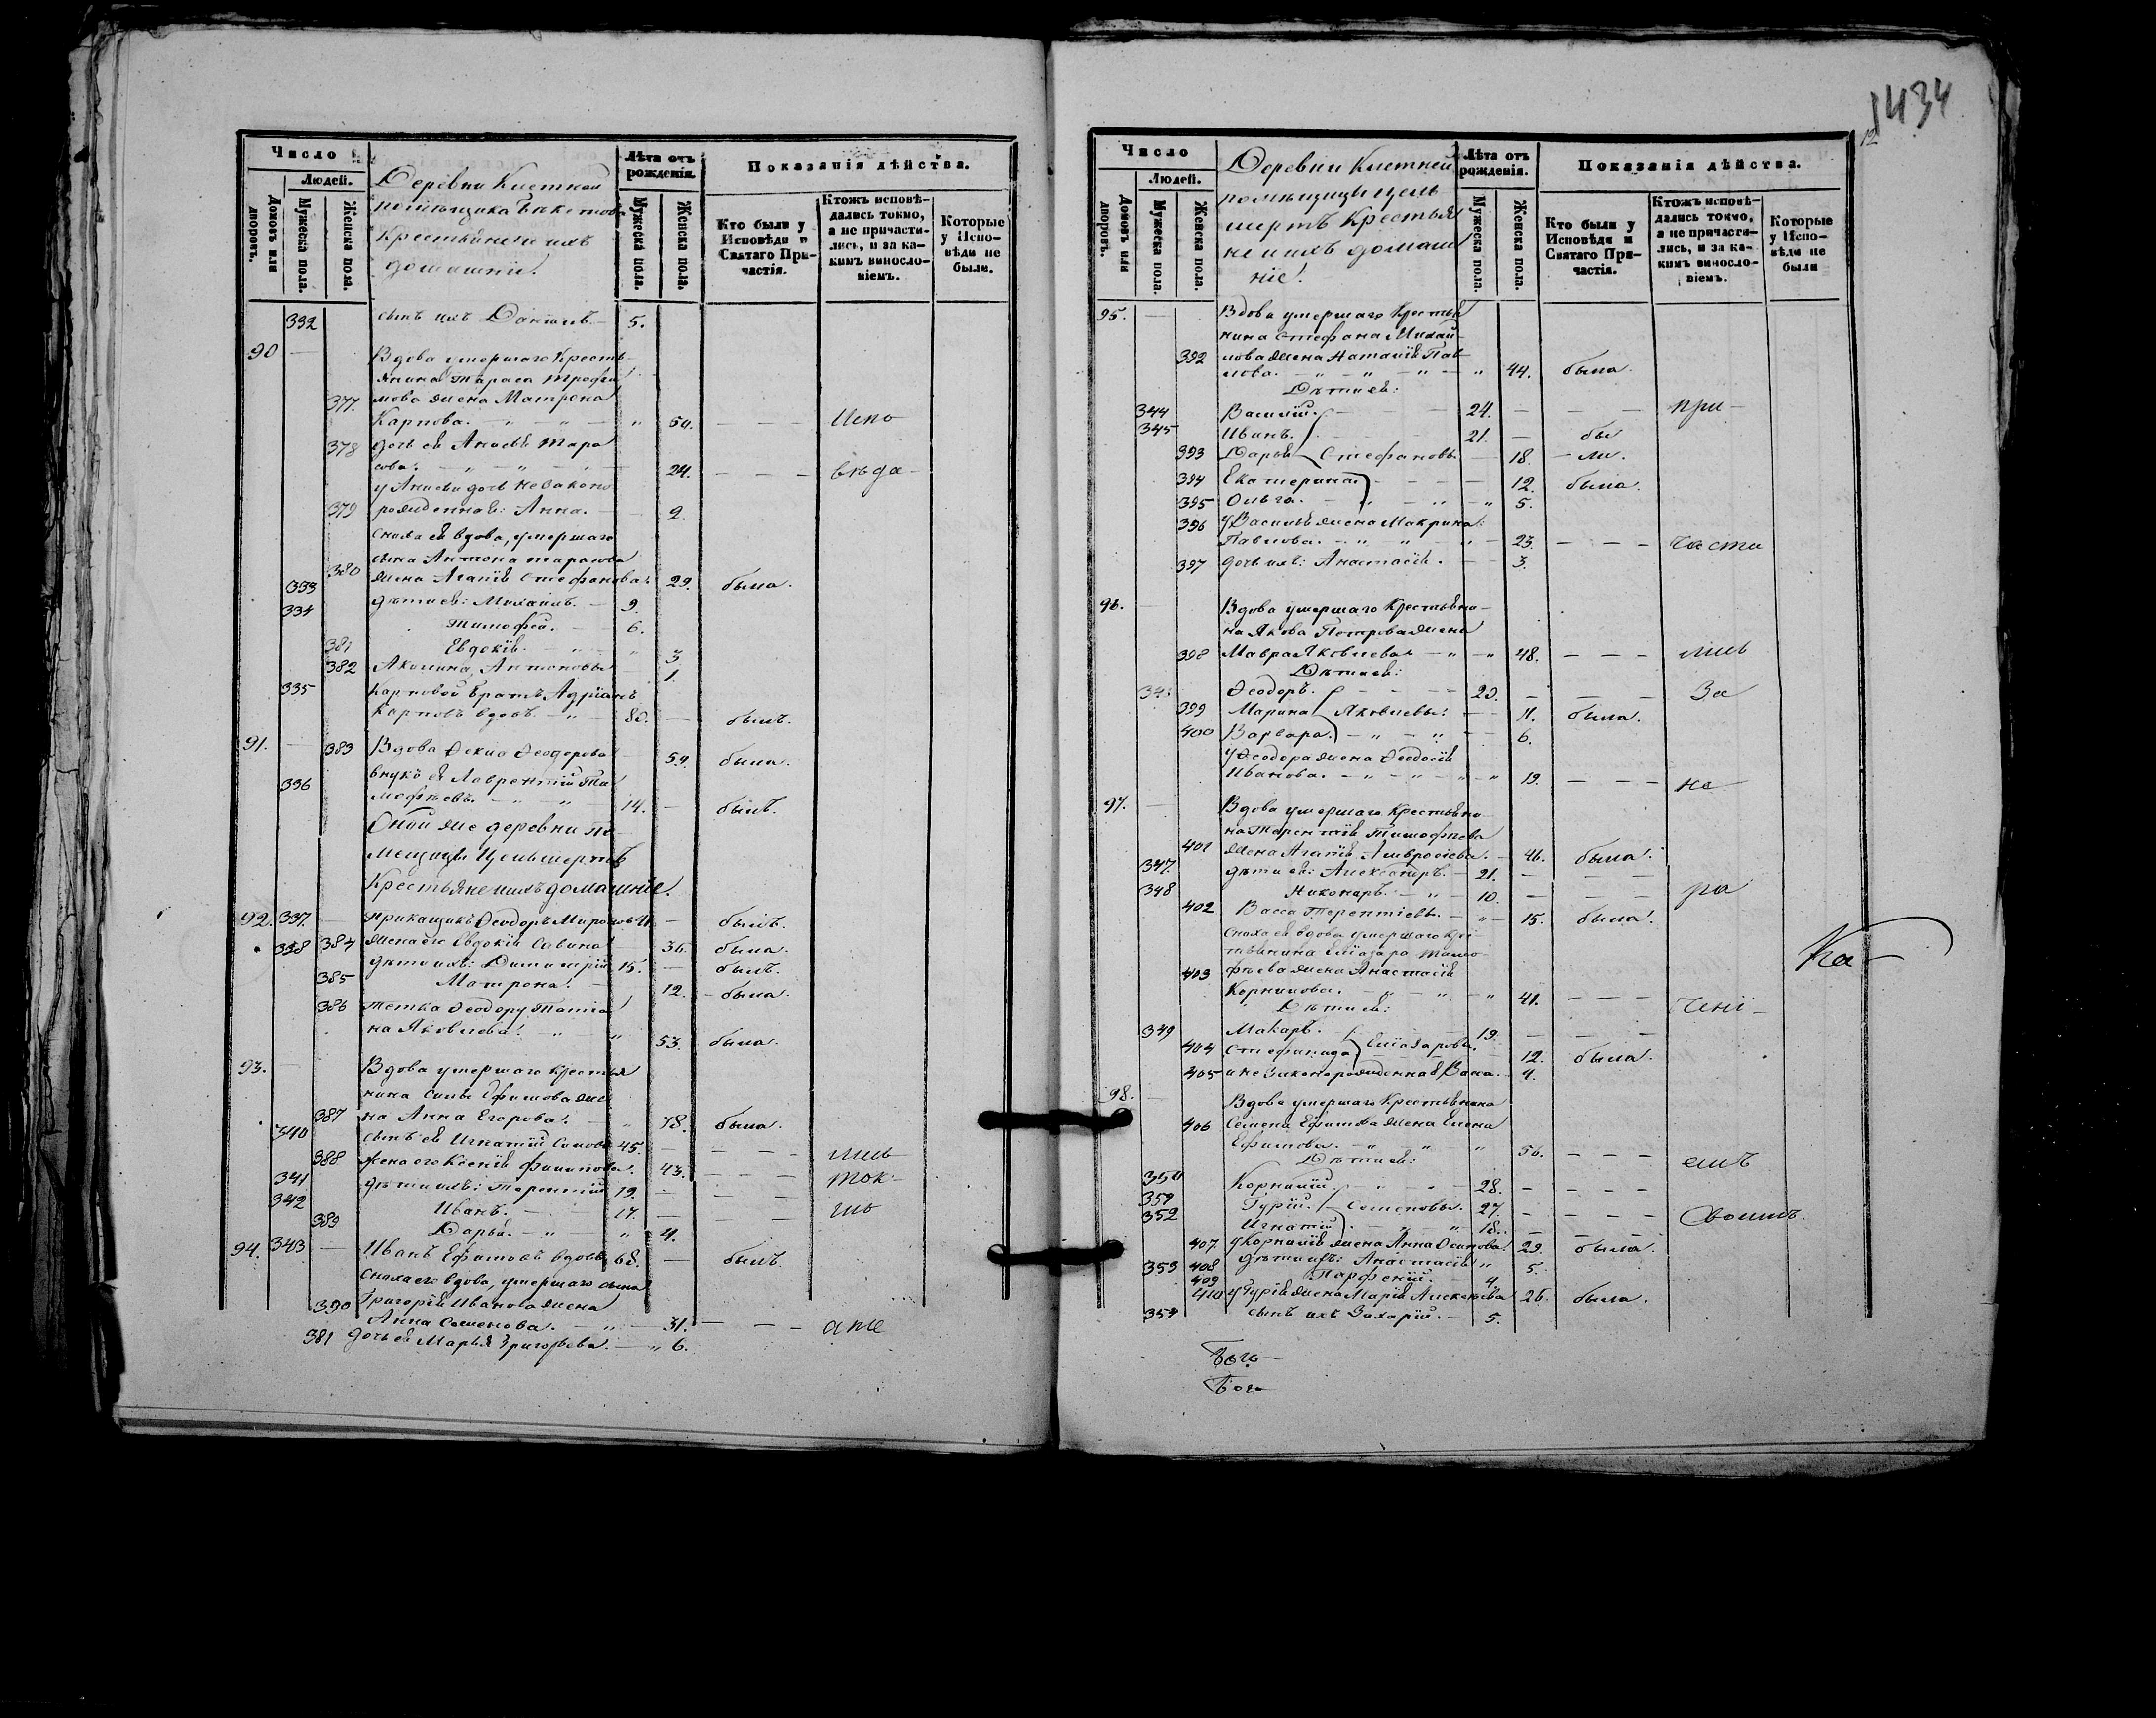 1434
12
Число
Людей.
Домовъ или дворовъ.
Мужеска пола.
Женска пола.
Деревни Кистной
помѣщика Бекетова
Крестьяне и ихъ
домашніи.
Лѣта отъ рожденія.
Мужеска пола.
Женска пола.
Показанія дѣйства.
Кто были у Исповѣди и Святаго При-частія.
Ктожъ исповѣ-дались токмо, а не причасти-лись, и за ка-кимъ винословіемъ.
Которые у Испо-вѣди не были.
332 сынъ ихъ Даніилъ 5.
90 Вдова умершаго Кресть-
янина Тараса Трофи
377. мова жена Матрена
Карпова. 50. Испо
378 дочь ея Анисья Тара
сова. 24. вѣда-
у Анисьи дочь незаконо
379 рожденная: Анна. 2.
сноха ея вдова, умершаго
сына Антона Тарасова
380 жена Агапія Стефанова. 29. была.
333 дѣти ея: Михаилъ. 9.
334 Тимофей. 6.
381 Евдокія. 3
382 Акилина Антоновы 1.
335 Карповой братъ Адріанъ
Карповъ вдовъ. 80. былъ.
91. 383 Вдова Ѳекла Ѳеодорова 59. была.
внукъ ея Лаврентій Ти
336 мофѣевъ. 14. былъ.
Оной же деревни по
мещицы Цельшертъ
Крестьяне и ихъ домашніе.
92. 337. прикащикъ Ѳеодоръ Мироновъ 41. былъ.
384 жена его Евдокія Савина 36. была.
338 дѣти ихъ: Димитрій 15. былъ.
385 Матрона. 12. была.
386 тетка Ѳеодору Татіа
на Яковлева. 53. была.
93. Вдова умершаго крестья
нина Силы Ефимова же
387 на Анна Егорова. 78. была.
340 сынъ ея Игнатій Силовъ 45. лись
388 жена его Ксенія Филипова. 43. ток-
341 дѣти ихъ: Терентій 19.
342 Иванъ. 17. мо
389 Дарья. 4.
94. 343 Иванъ Ефимовъ вдовъ 68. былъ.
сноха его вдова, умершаго сына
390 Григорія Иванова жена
Анна Семенова. 31. а не
381 дочь ея Марья Григорьева. 6.
Число
Людей.
Домовъ или дворовъ.
Мужеска пола.
Женска пола.
Деревни Кистней
помѣщицы Цель
шертъ Крестья
не и ихъ домаш
ніе.
Лѣта отъ рожденія.
Мужеска пола.
Женска пола.
Показанія дѣйства.
Кто были у Исповѣди и Святаго При-частія.
Ктожъ исповѣ-дались токмо, а не причасти-лись, и за ка-кимъ винословіемъ.
Которые у Испо-вѣди не были
95. Вдова умершаго Крестья
нина Стефана Михай
392 лова жена Наталія Пав
лова. 44. была.
Дѣти ея:
344 Василій. 24. при-
345 Иванъ. 21. бы
393 Дарья Стефановы 18. ли.
394 Екатерина. 12. была.
395 Ольга. 5.
396 у Василья жена Макрина
Павлова. 23. части
397 дочь ихъ: Анастасія. 3.
96. Вдова умершаго Крестьяни-
на Якова Петрова жена
398 Мавра Яковлева 48. лись
Дѣти ея:
Ѳеодоръ. 20. За
399 Марина Яковлевы. 11. была.
400 Варвара. 6.
у Ѳеодора жена Ѳеодосія
Иванова. 19. не
97. Вдова умершаго Крестьяни
на Терентія Тимофѣева
401 жена Агапія Амвросіева. 46. была.
347. дѣти ея: Александръ. 21.
348 Никоноръ. 10. ра
402 Васса Терентіевы. 15. была.
сноха ея вдова умершаго кре
стьянина Елізара Тимо
403 фѣева жена Анастасія
Корнилова. 41. чені
Дѣти ея:
349 Макаръ. 19.
404 Стефанида Елізаровы. 12. была.
405 и незаконорожденная Васса. 4.
Ка
98. Вдова умершаго Крестьянина
406 Семена Ефимова жена Елена
Ефимова. 56. емъ
Дѣти ея:
350 Корнилій. 28.
351 Гурій. Семеновы. 27. Своимъ.
352 Игнатій 18.
407. у Корнилія жена Анна Осипова 29. была.
408 дѣти ихъ: Анастасія 5.
353 409 Парфеній. 4.
410 у Гурія жена Марія Алексѣева 26. была.
354 сынъ ихъ Захарій. 5.